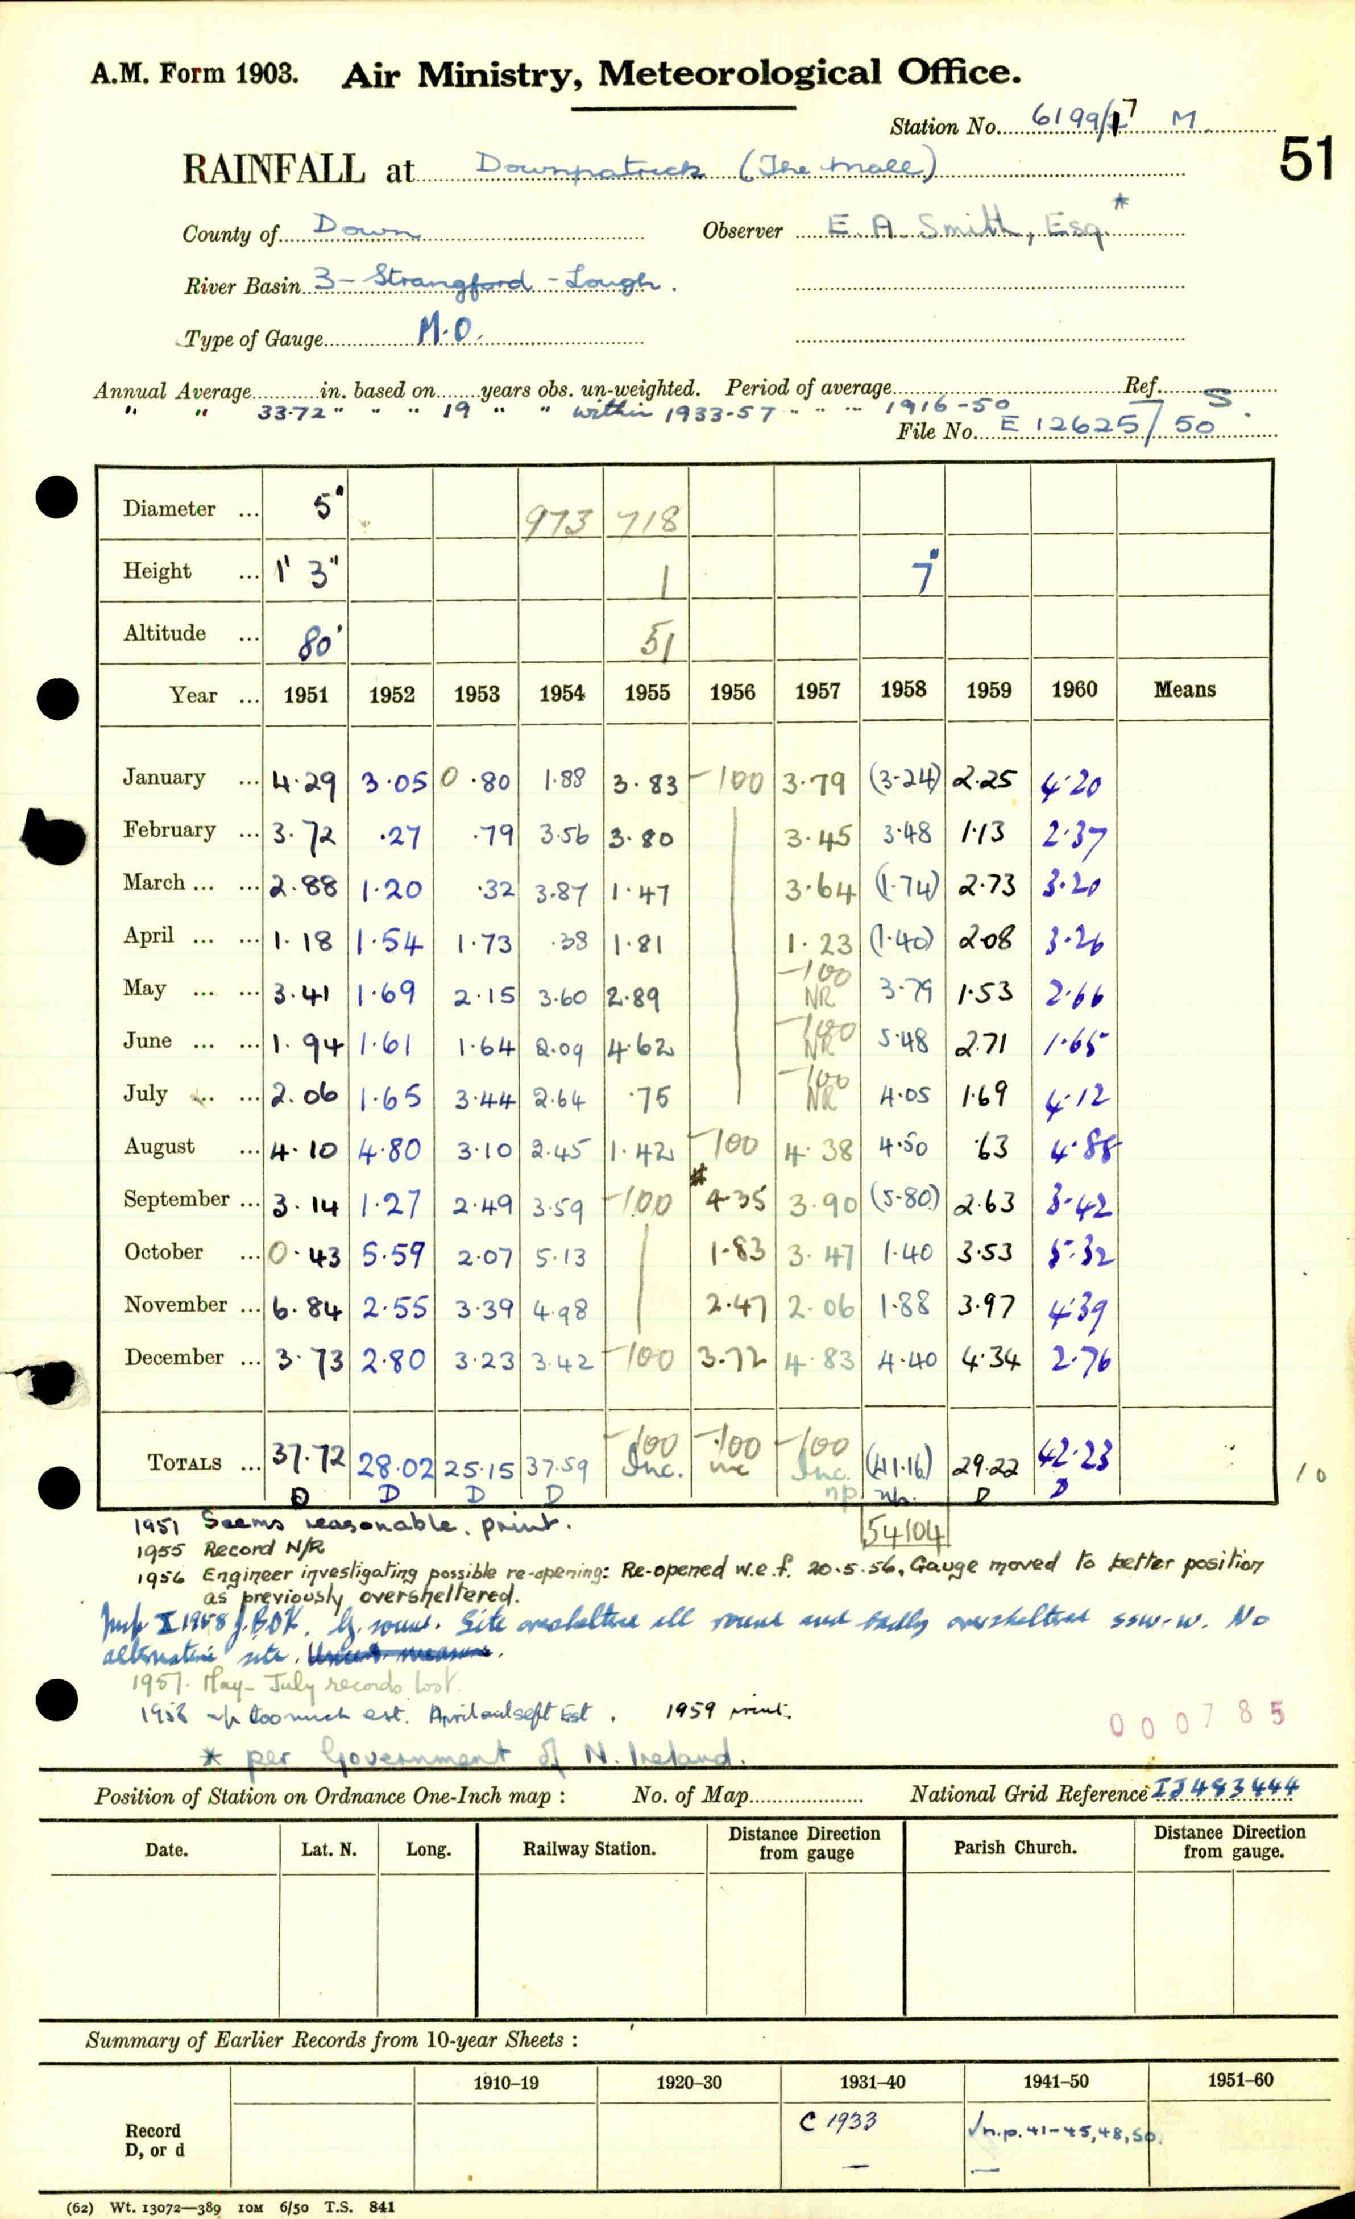 A.M. Form 1903. Air Ministry, Meteorological Office.
Station No. 6199/17 M.
51
RAINFALL at Downpatrick (The Mall)
County of Down Observer E. A. Smith, Esq. *
River Basin 3 - Strangford - Lough.
Type of Gauge M.O.
Annual Average in. based on years obs. un-weighted. Period of average Ref. S.
" " 33.72 " " " 19 " " within 1933-57 " " " 1916-50
File No. E 12625/50
Diameter ... 5" 973 718
Height ... 1' 3" 1 7"
Altitude ... 80' 51
Year ... 1951 1952 1953 1954 1955 1956 1957 1958 1959 1960 Means
January ... 4.29 3.05 0.80 1.88 3.83 -100 3.79 (3.24) 2.25 4.20
February ... 3.72 .27 .79 3.56 3.80 3.45 3.48 1.13 2.37
March ... ... 2.88 1.20 .32 3.87 1.47 3.64 (1.74) 2.73 3.20
April ... ... 1.18 1.54 1.73 .38 1.81 1.23 (1.40) 2.08 3.26
May ... ... 3.41 1.69 2.15 3.60 2.89 -100 NR 3.79 1.53 2.66
June ... ... 1.94 1.61 1.64 2.09 4.62 -100 NR 5.48 2.71 1.65
July ... ... 2.06 1.65 3.44 2.64 .75 -100 NR 4.05 1.69 4.12
August ... 4.10 4.80 3.10 2.45 1.42 -100 4.38 4.50 .63 4.88
September ... 3.14 1.27 2.49 3.59 -100 * 4.35 3.90 (5.80) 2.63 3.42
October ... 0.43 5.59 2.07 5.13 1.83 3.47 1.40 3.53 5.32
November ... 6.84 2.55 3.39 4.98 2.47 2.06 1.88 3.97 4.39
December ... 3.73 2.80 3.23 3.42 -100 3.72 4.83 4.40 4.34 2.76
TOTALS ... 37.72 28.02 25.15 37.59 -100 Inc. -100 inc -100 Inc. (41.16) 29.22 42.23
D D D D np np. D D
10
1951 Seems reasonable, print. 54104
1955 Record N/R
1956 Engineer investigating possible re-opening: Re-opened w.e.f. 20.5.56, Gauge moved to better position
as previously oversheltered.
Insp I 1958 Site all round and badly SSW-W. No
alternative site.
1957. May - July records lost.
1958 n/p too much est. April and Sept Est. 1959 print.
000785
* per Government of N. Ireland.
Position of Station on Ordnance One-Inch map : No. of Map National Grid Reference IJ483444
Date. Lat. N. Long. Railway Station. Distance from gauge Direction Parish Church. Distance Direction from gauge.
Summary of Earlier Records from 10-year Sheets :
1910–19 1920–30 1931–40 1941–50 1951–60
Record D, or d C 1933 — √n.p. 41-45, 48, 50. —
(62) Wt. 13072—389 10M 6/50 T.S. 841